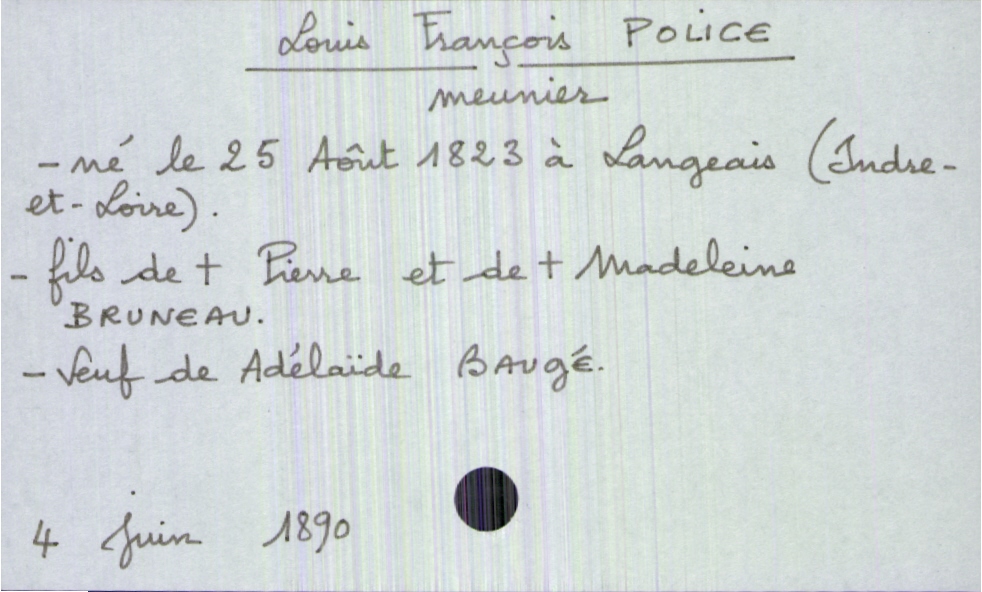 Louis François POLICE
meunier
- né le 25 Août 1823 à Langeais (Indre-
et-Loire).
- fils de + Pierre et de + Madeleine
BRUNEAU.
- Veuf de Adélaïde BAUGÉ.
4 Juin 1890